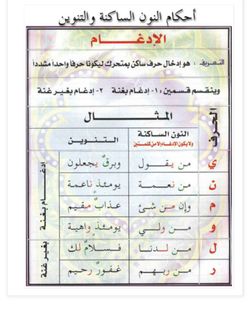 أحكام النون الساكنة والتنوين
الإدغام
التعريف : هو إدخال حرف ساكن بمتحرك ليكونا حرفا واحدا مشددا
وينقسم قسمين : ١- إدغام بغنة ٢- إدغام بغير غنة
الحرف
المثال
النون الساكنة
ولا يكون الإدغام إلا من كلمتين
التنوين
ي من يقول وبرق يجعلون
ن من نعمة يومئذ ناعمة
م وإن من شئ عذاب مقيم
و من ولي يومئذ واهية
ل من لدنا فسلام لك
ر من ربهم غفور رحيم
إدغام بغنة
بغير غنة